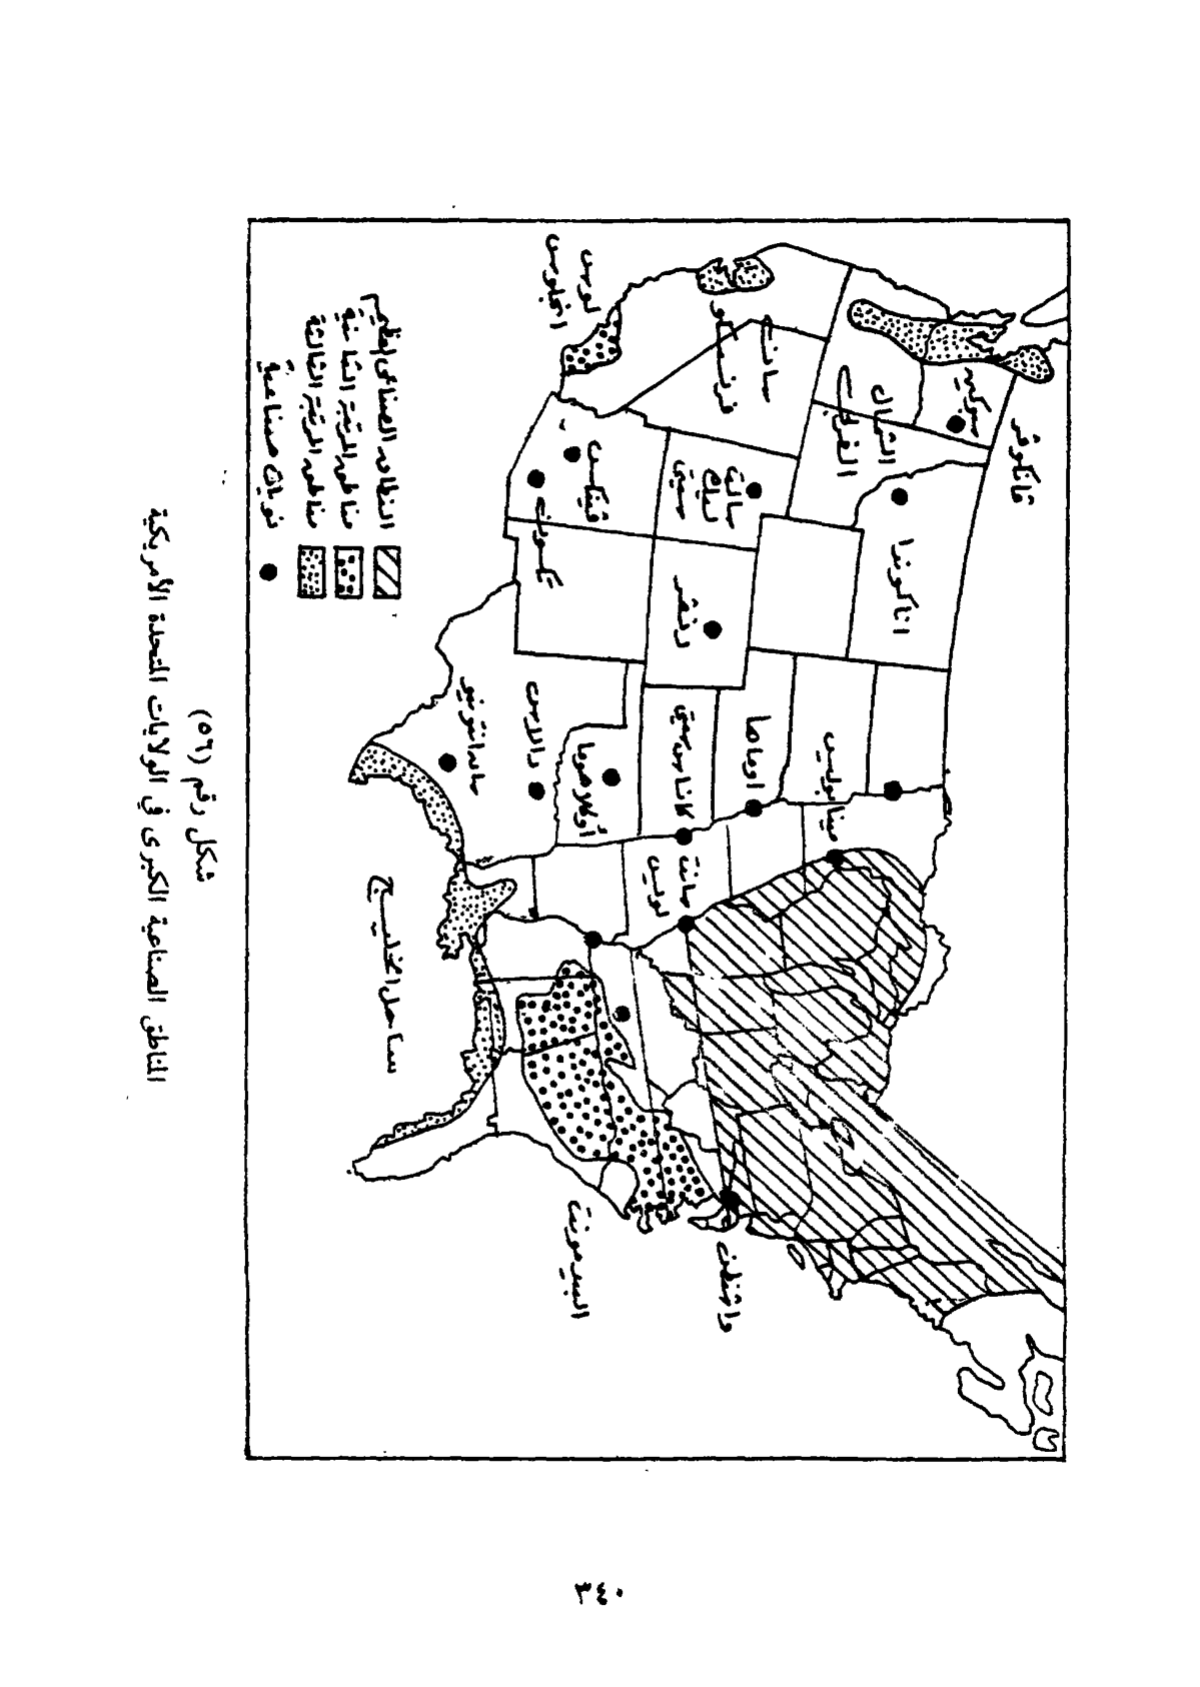 ڤانكوڤر
سبوكين
الشمال
الغربى
اناكوندا
سانت
فرنسسكو
سالت
ليك
سيتى
لوس
انجلوس
فينكس
توسون
دنفر
مينابوليس
اوماها
كانساس سيتى
سانت
لويس
أوكلاهوما
دالاس
سان انتونيو
واشنطن
البيدمونت
ساحل الخليج
النطاق الصناعى العظيم
مناطق المرتبة الثانية
مناطق المرتبة الثالثة
نويات صناعية
شكل رقم (٥٦)
المناطق الصناعية الكبرى في الولايات المتحدة الأمريكية
٣٤٠